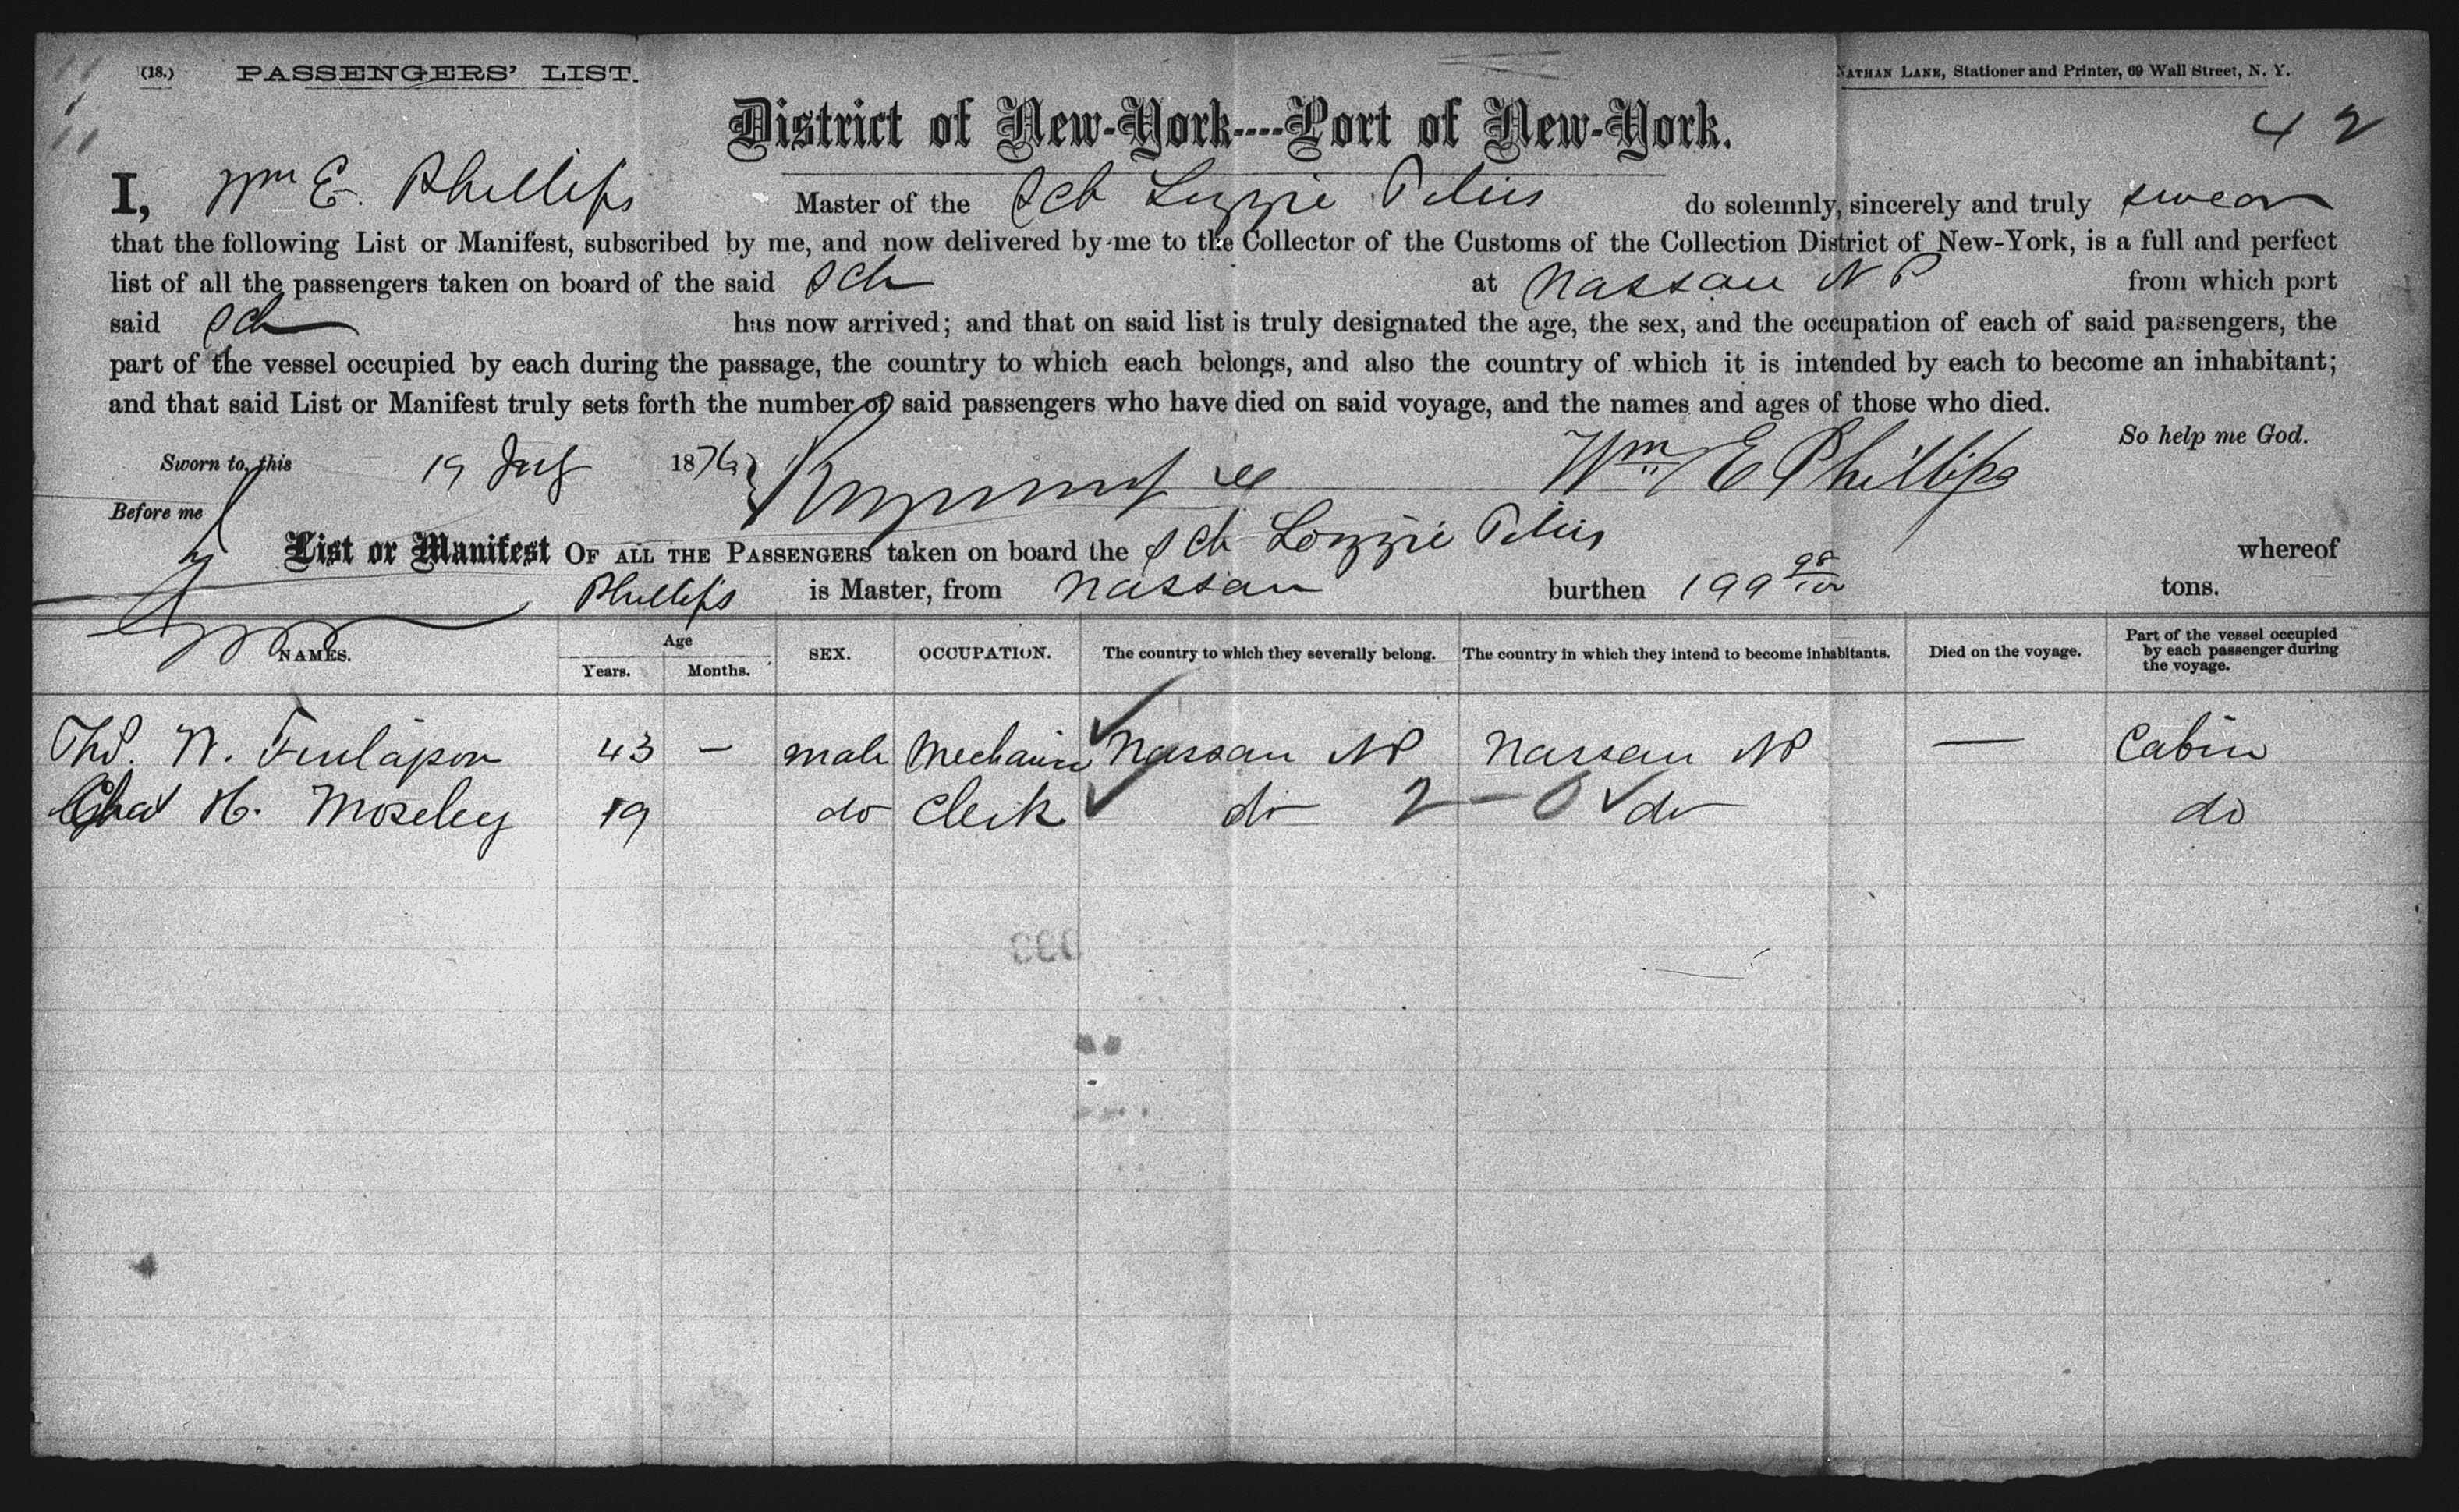 (18.) PASSENGERS' LIST.
NATHAN LANE, Stationer and Printer, 69 Wall Street, N. Y.
District of New-York----Port of New-York.
42
I, Wm E. Phillips Master of the Sch Lizzie do solemnly, sincerely and truly swear
that the following List or Manifest, subscribed by me, and now delivered by me to the Collector of the Customs of the Collection District of New-York, is a full and perfect
list of all the passengers taken on board of the said Sch at Nassau N P from which port
said Sch has now arrived; and that on said list is truly designated the age, the sex, and the occupation of each of said passengers, the
part of the vessel occupied by each during the passage, the country to which each belongs, and also the country of which it is intended by each to become an inhabitant;
and that said List or Manifest truly sets forth the number of said passengers who have died on said voyage, and the names and ages of those who died.
So help me God.
Sworn to, this 19 July 1876 Wm E Phillips
Before me
List or Manifest OF ALL THE PASSENGERS taken on board the Sch Lizzie whereof
Phillips is Master, from Nassau burthen 199 98/100 tons.
NAMES. Age Years. Months. SEX. OCCUPATION. The country to which they severally belong. The country in which they intend to become inhabitants. Died on the voyage. Part of the vessel occupied by each passenger during the voyage.
Thos. N. 43 — male Mechanic Nassau NP Nassau NP — Cabin
Chas H. Moseley 19 do Clerk do 2 - 0 do do